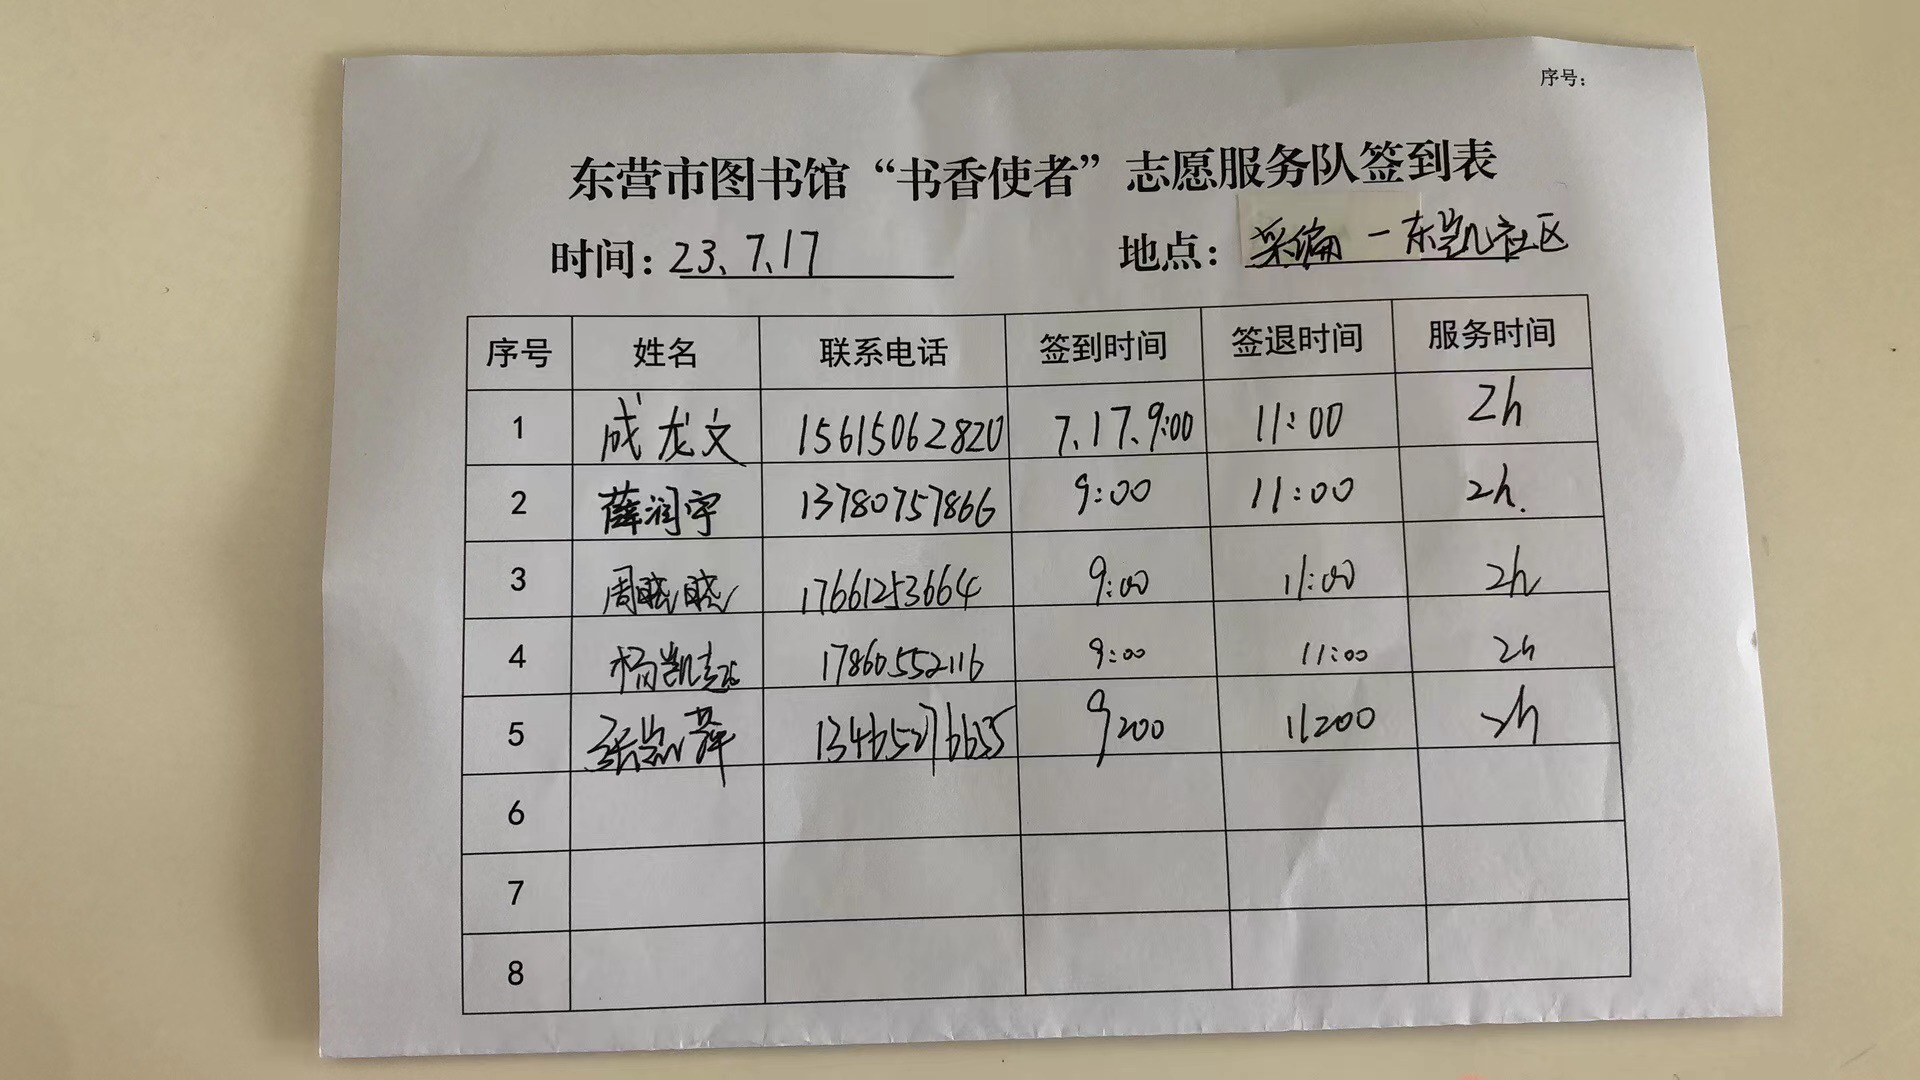 序号：
东营市图书馆“书香使者”志愿服务队签到表
时间：23、7、17 地点：采编－东凯社区
序号 姓名 联系电话 签到时间 签退时间 服务时间
1 成龙文 15615062820 7、17、9:00 11:00 2h
2 薛润宇 13780757866 9:00 11:00 2h.
3 周晓晓 17661253664 9:00 11:00 2h
4 杨凯超 17860552116 9:00 11:00 2h
5 张 萍 13465276655 9:00 11:00 2h
6
7
8